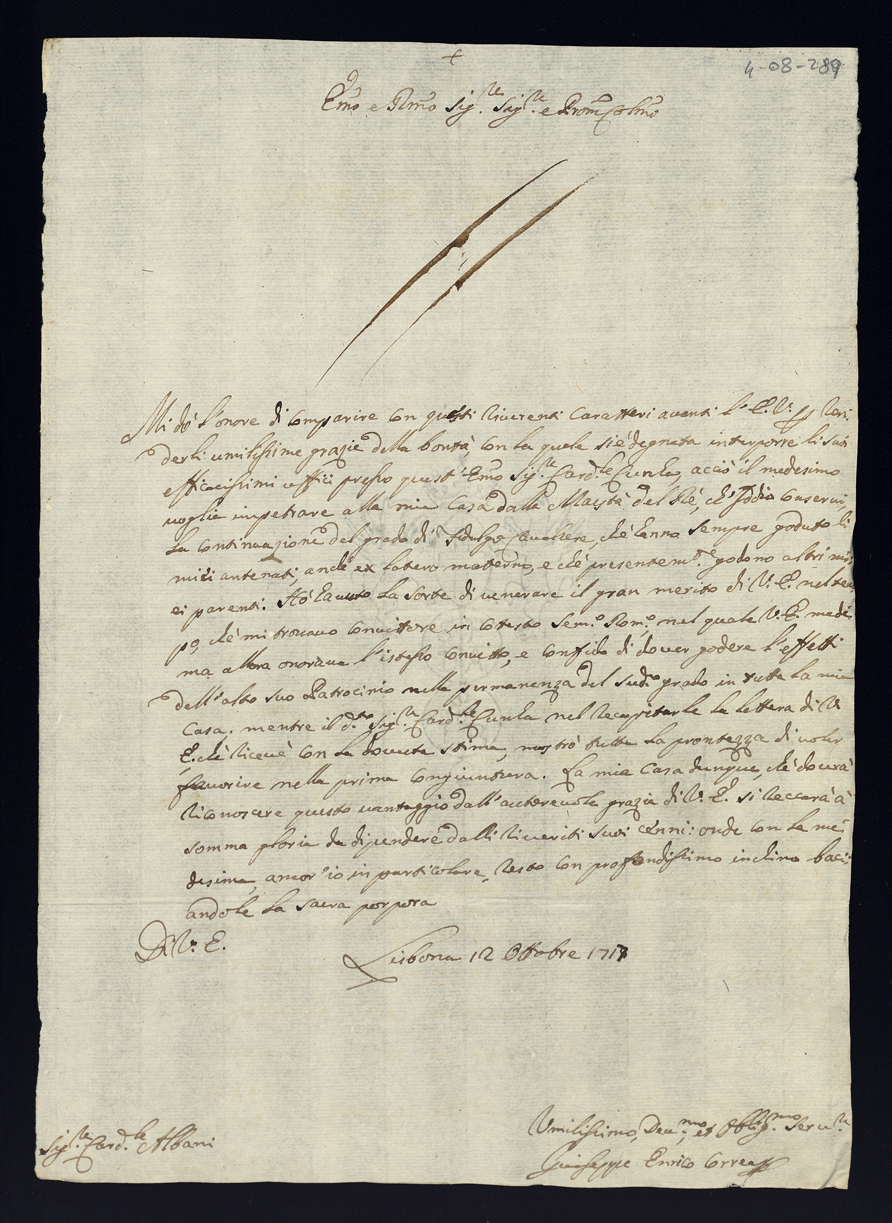 +
4-08-289
Emo e Rmo Sig.re Sig.re e Pron Colmo
Mi dò l'onore di comparire con questi riverenti caratteri avanti l'E. V. p ren
derli umilissime grazie della bontà, con la quale si è degnata interporre li suoi
efficacissimi uffici presso quest'Emo Sig.re Card.le Cunha, acciò il medesimo
voglia impetrare alla mia Casa dalla Maestà del Rè, ch'Iddio conservi,
la continuazione del grado di Fidalgo Cavaliere, chè hanno sempre goduto li
miei antenati, anche ex latere materno, e chè presentem.te godono altri mi
ei parenti. Hò havuto la sorte di venerare il gran merito di V. E. nel tem
po, chè mi trovavo convittore in cotesto Sem.o Rom.o, nel quale V. E. mede
ma allora onorava l'istesso convitto, e confido di dover godere l'effetti
dell'alto suo Patrocinio nella permanenza del sud.o grado in tutta la mia
Casa. mentre il d.to Sig.re Card.le Cunha nel recapitarle la lettera di V.
E. chè ricevè con la dovuta stima, mostrò tutta la prontezza di voler
favorire nella prima congiuntura. La mia Casa dunque, chè dovrà
riconoscere questo vantaggio dall'autorevole grazia di V. E. si reccarà à
somma gloria da dipendere dalli riveriti suoi cenni: onde con la me
desima, ancor'io in particolare, resto con profondissimo inclino baci
andole la sacra porpora
Di V. E.
Lisbona 12 Ottobre 1717
Umilissimo, Dev.mo, et Obblig.mo Serv.re
Giuseppe Enrico Correa
Sig.re Card.le Albani